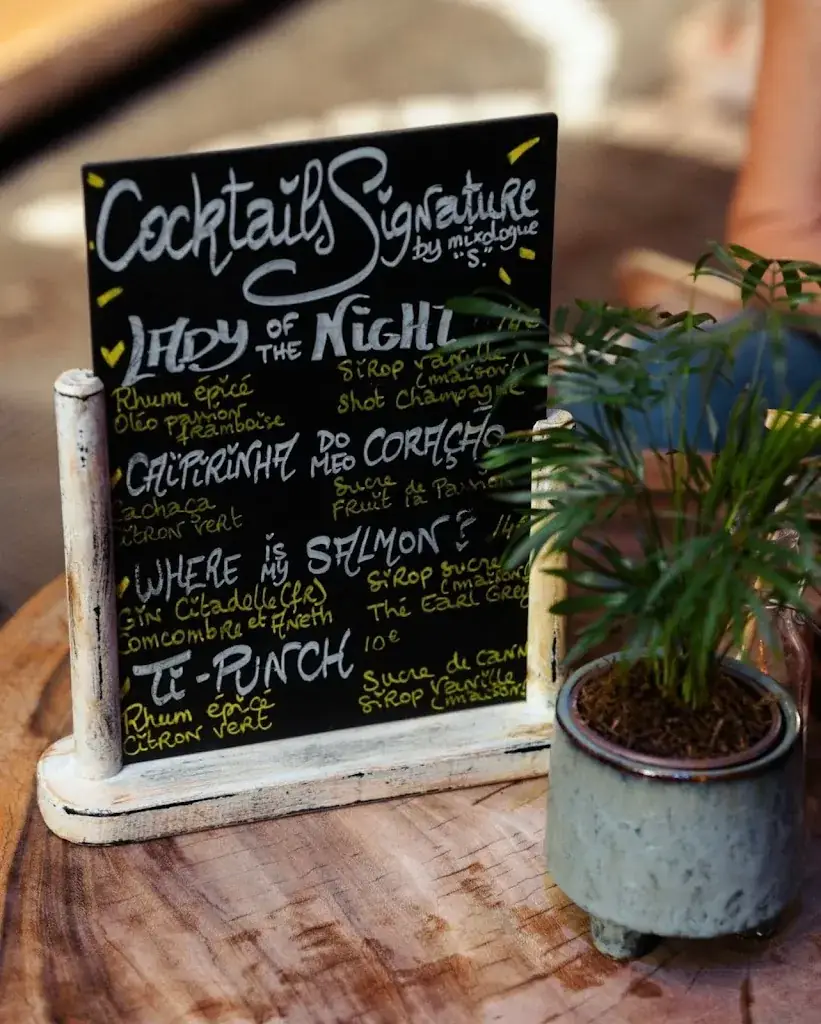 Cocktails Signature
by mixologue
"S."
LADY OF THE NIGHT 14€
Rhum épicé
Oléo passion
framboise
Sirop vanille
(maison)
Shot Champagne
CAÏPIRINHA DO MEO CORAÇÃO
Cachaca
Citron vert
Sucre de
Fruit la Passion
WHERE IS MY SALMON? 14€
Gin Citadelle (fr)
Comcombre et Aneth
Sirop sucre
(maison)
Thé Earl Grey
Ti-PUNCH 10€
Rhum épicé
Citron vert
Sucre de cann
Sirop vanille
(maison)